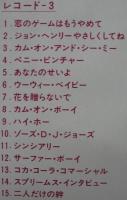 レコード-3
1. 恋のゲームはもうやめて
2. ジョン・ヘンリーやさしくしてね
3. カム・オン・アンド・シー・ミー
4. ペニー・ピンチャー
5. あなたのせいよ
6. ウーウィー・ベイビー
7. 花を贈らないで
8. カム・オン・ボーイ
9. ハイ・ホー
10. ゾーズ・D・J・ショーズ
11. シンシアリー
12. サーファー・ボーイ
13. コカ・コーラ・コマーシャル
14. スプリームス・インタビュー
15. 二人だけの絆